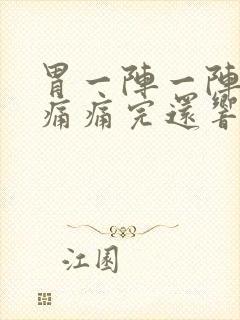 胃一陣一陣
痛痛完還響
江園